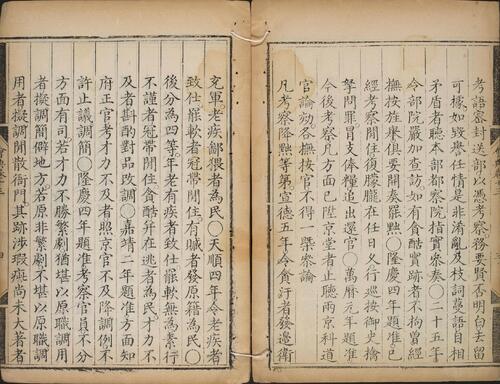 考語密封送部以憑考察務要賢否明白去留
可據如毀譽任情是非淆亂及枝詞蔓語自相
矛盾者聽本部都察院指實參奏〇二十五年
令部院嚴加查訪如有貪酷實跡者不拘曾經
撫按旌舉俱要開奏罷黜〇隆慶四年題准巳
經考察閒住後朦朧在任日久行巡按御史擒
拏問罪冒支俸糧追出還官〇萬曆元年題准
今後考察凡方面巳陞京堂者止聽兩京科道
官論劾各撫按官不得一槩參論
凡考察降黜等第宣德五年令貪汙者發邊衛
充軍老疾鄙猥者為民〇天順四年令老疾者
致仕罷軟者冠帶閒住有贓者發原籍為民〇
後分為四等年老有疾者致仕罷軟無為素行
不謹者冠帶閒住貪酷并在逃者為民才力不
及者斟酌對品改調〇嘉靖二年題准方面知
府正官考才力不及者照京官不及降調例不
許止議調簡〇隆慶四年題准考察官員不分
方面有司若才力不勝繁劇猶堪以原職調用
者擬調簡僻地方若原非繁劇不堪以原職調
用者擬調閒散衙門其跡涉瑕疵尚未大著者